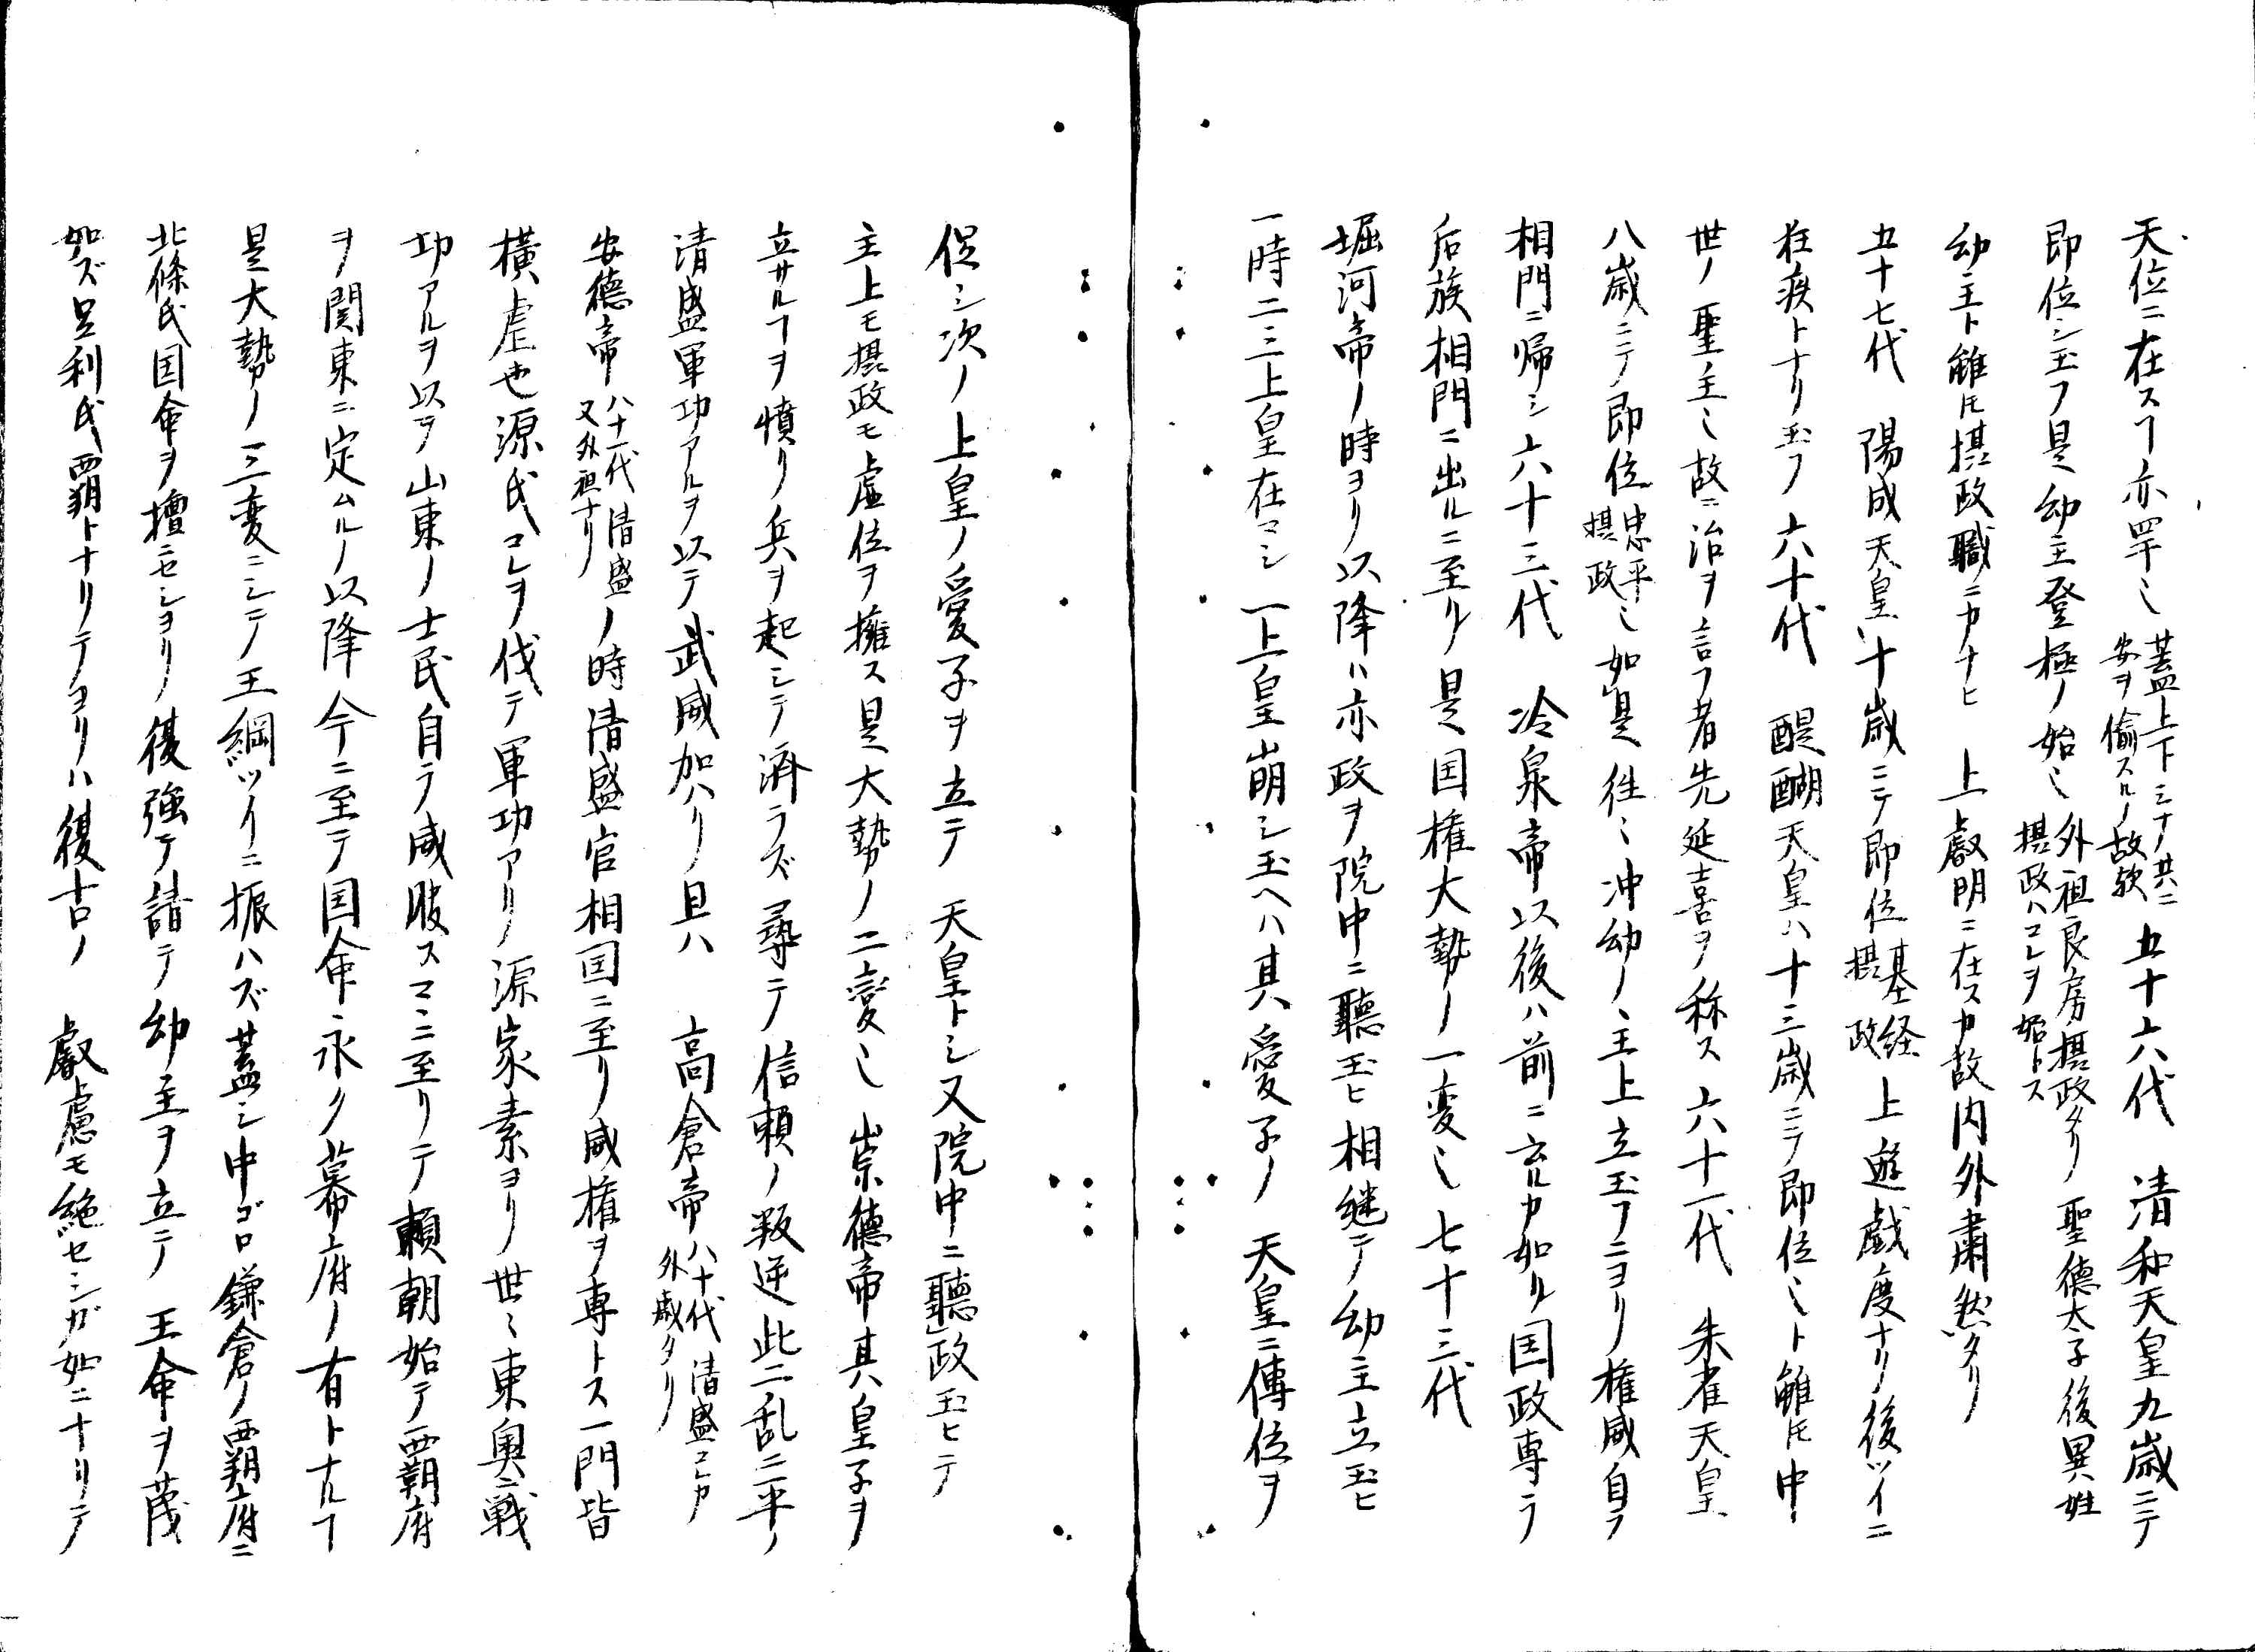 天位ニ在スヿ亦罕シ
蓋上下ミナ共ニ
安ヲ偸スルノ故歟
五十六代　清和天皇九歳ニテ
即位シ玉フ是幼主登極ノ始ミ
外祖良房摂政タリ
摂政ハコレヲ始トス
聖徳太子後異姓
幼主ト雖𪜈摂政職ニカナヒ　上叡明ニ在スカ故内外粛然タリ
五十七代　陽成天皇十歳ニテ即位
基経
摂政
上遊戯度ナリ後ツイニ
狂疾トナリ玉フ　六十代　醍醐天皇ハ十三歳ニテ即位ミト雖𪜈中
世ノ聖主ミ故ニ治ヲ言フ者先延喜ヲ称ス　六十一代　朱雀天皇
八歳ニテ即位
忠平
摂政
ミ如是往ミ冲幼ノ主上立玉フニヨリ権威自ラ
相門ニ帰シ六十三代　冷泉帝以後ハ前ニ言ルカ如ク国政専ラ
后族相門ニ出ルニ至ル是国権大勢ノ一変ミ七十三代
堀河帝ノ時ヨリ以降ハ亦政ヲ院中ニ聴玉ヒ相継テ幼主立玉ヒ
一時二三上皇在マシ一上皇崩シ玉ヘハ其愛子ノ　天皇ニ傳位ヲ
促シ次ノ上皇ノ愛子ヲ立テ　天皇トシ又院中ニ聴政玉ヒテ
主上モ摂政モ虚位ヲ擁ス是大勢ノ二変ミ　崇徳帝其皇子ヲ
立サルヿヲ憤リ兵ヲ起シテ済ラズ尋テ信頼ノ叛逆此二乱ニ平ノ
清盛軍功アルヲ以テ武威加ハリ且ハ　高倉帝
八十代　清盛コレカ
外戚タリ
安徳帝
八十一代　清盛
又外祖ナリ
ノ時清盛官相国ニ至リ威権ヲ専トス一門皆
横虐也源氏コレヲ伐テ軍功アリ源家素ヨリ世ミ東奥ニ戦
功アルヲ以テ山東ノ士民自ラ威服スマニ至リテ頼朝始テ覇府
ヲ関東ニ定ムルノ以降今ニ至テ国命永ク幕府ノ有トナルヿ
是大勢ノ三変ニシテ王綱ツイニ振ハズ蓋シ中ゴロ鎌倉ノ覇府ニ
北條氏国命ヲ擅ニセシヨリ復強テ請テ幼主ヲ立テ　王命ヲ蔑
如ズ足利氏覇トナリテヨリハ復古ノ　叡慮モ絶セシガ如ニナリテ